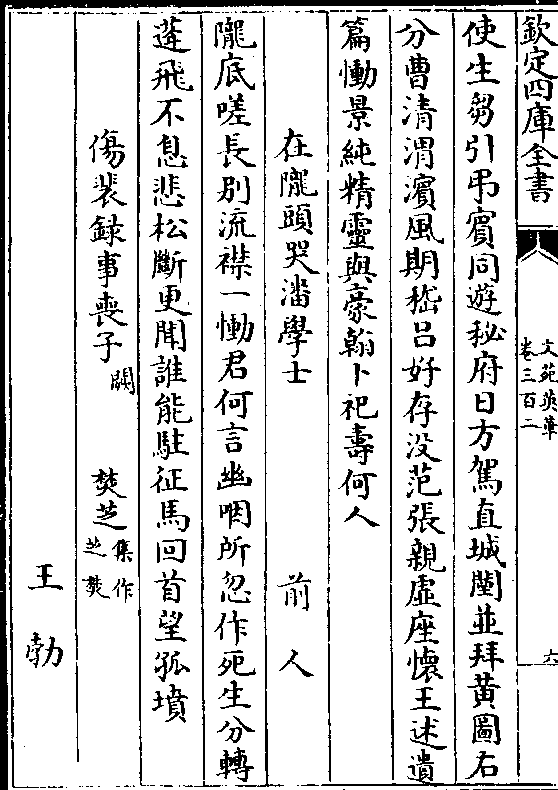 欽定四庫全書
文苑英華
卷三百二
六
使生芻引弔賓同遊秘府日方駕直城闉並拜黄圖右
分曹清渭濱風期嵇吕好存没范張親虚座懷王述遺
篇慟景純精靈與豪翰卜祀壽何人
在隴頭哭潘學士 前人
隴底嗟長別流襟一慟君何言幽咽所忽作死生分轉
蓬飛不息悲松斷更聞誰能駐征馬回首望孤墳
傷裴録事喪子 闕 焚芝 集作芝焚
王勃